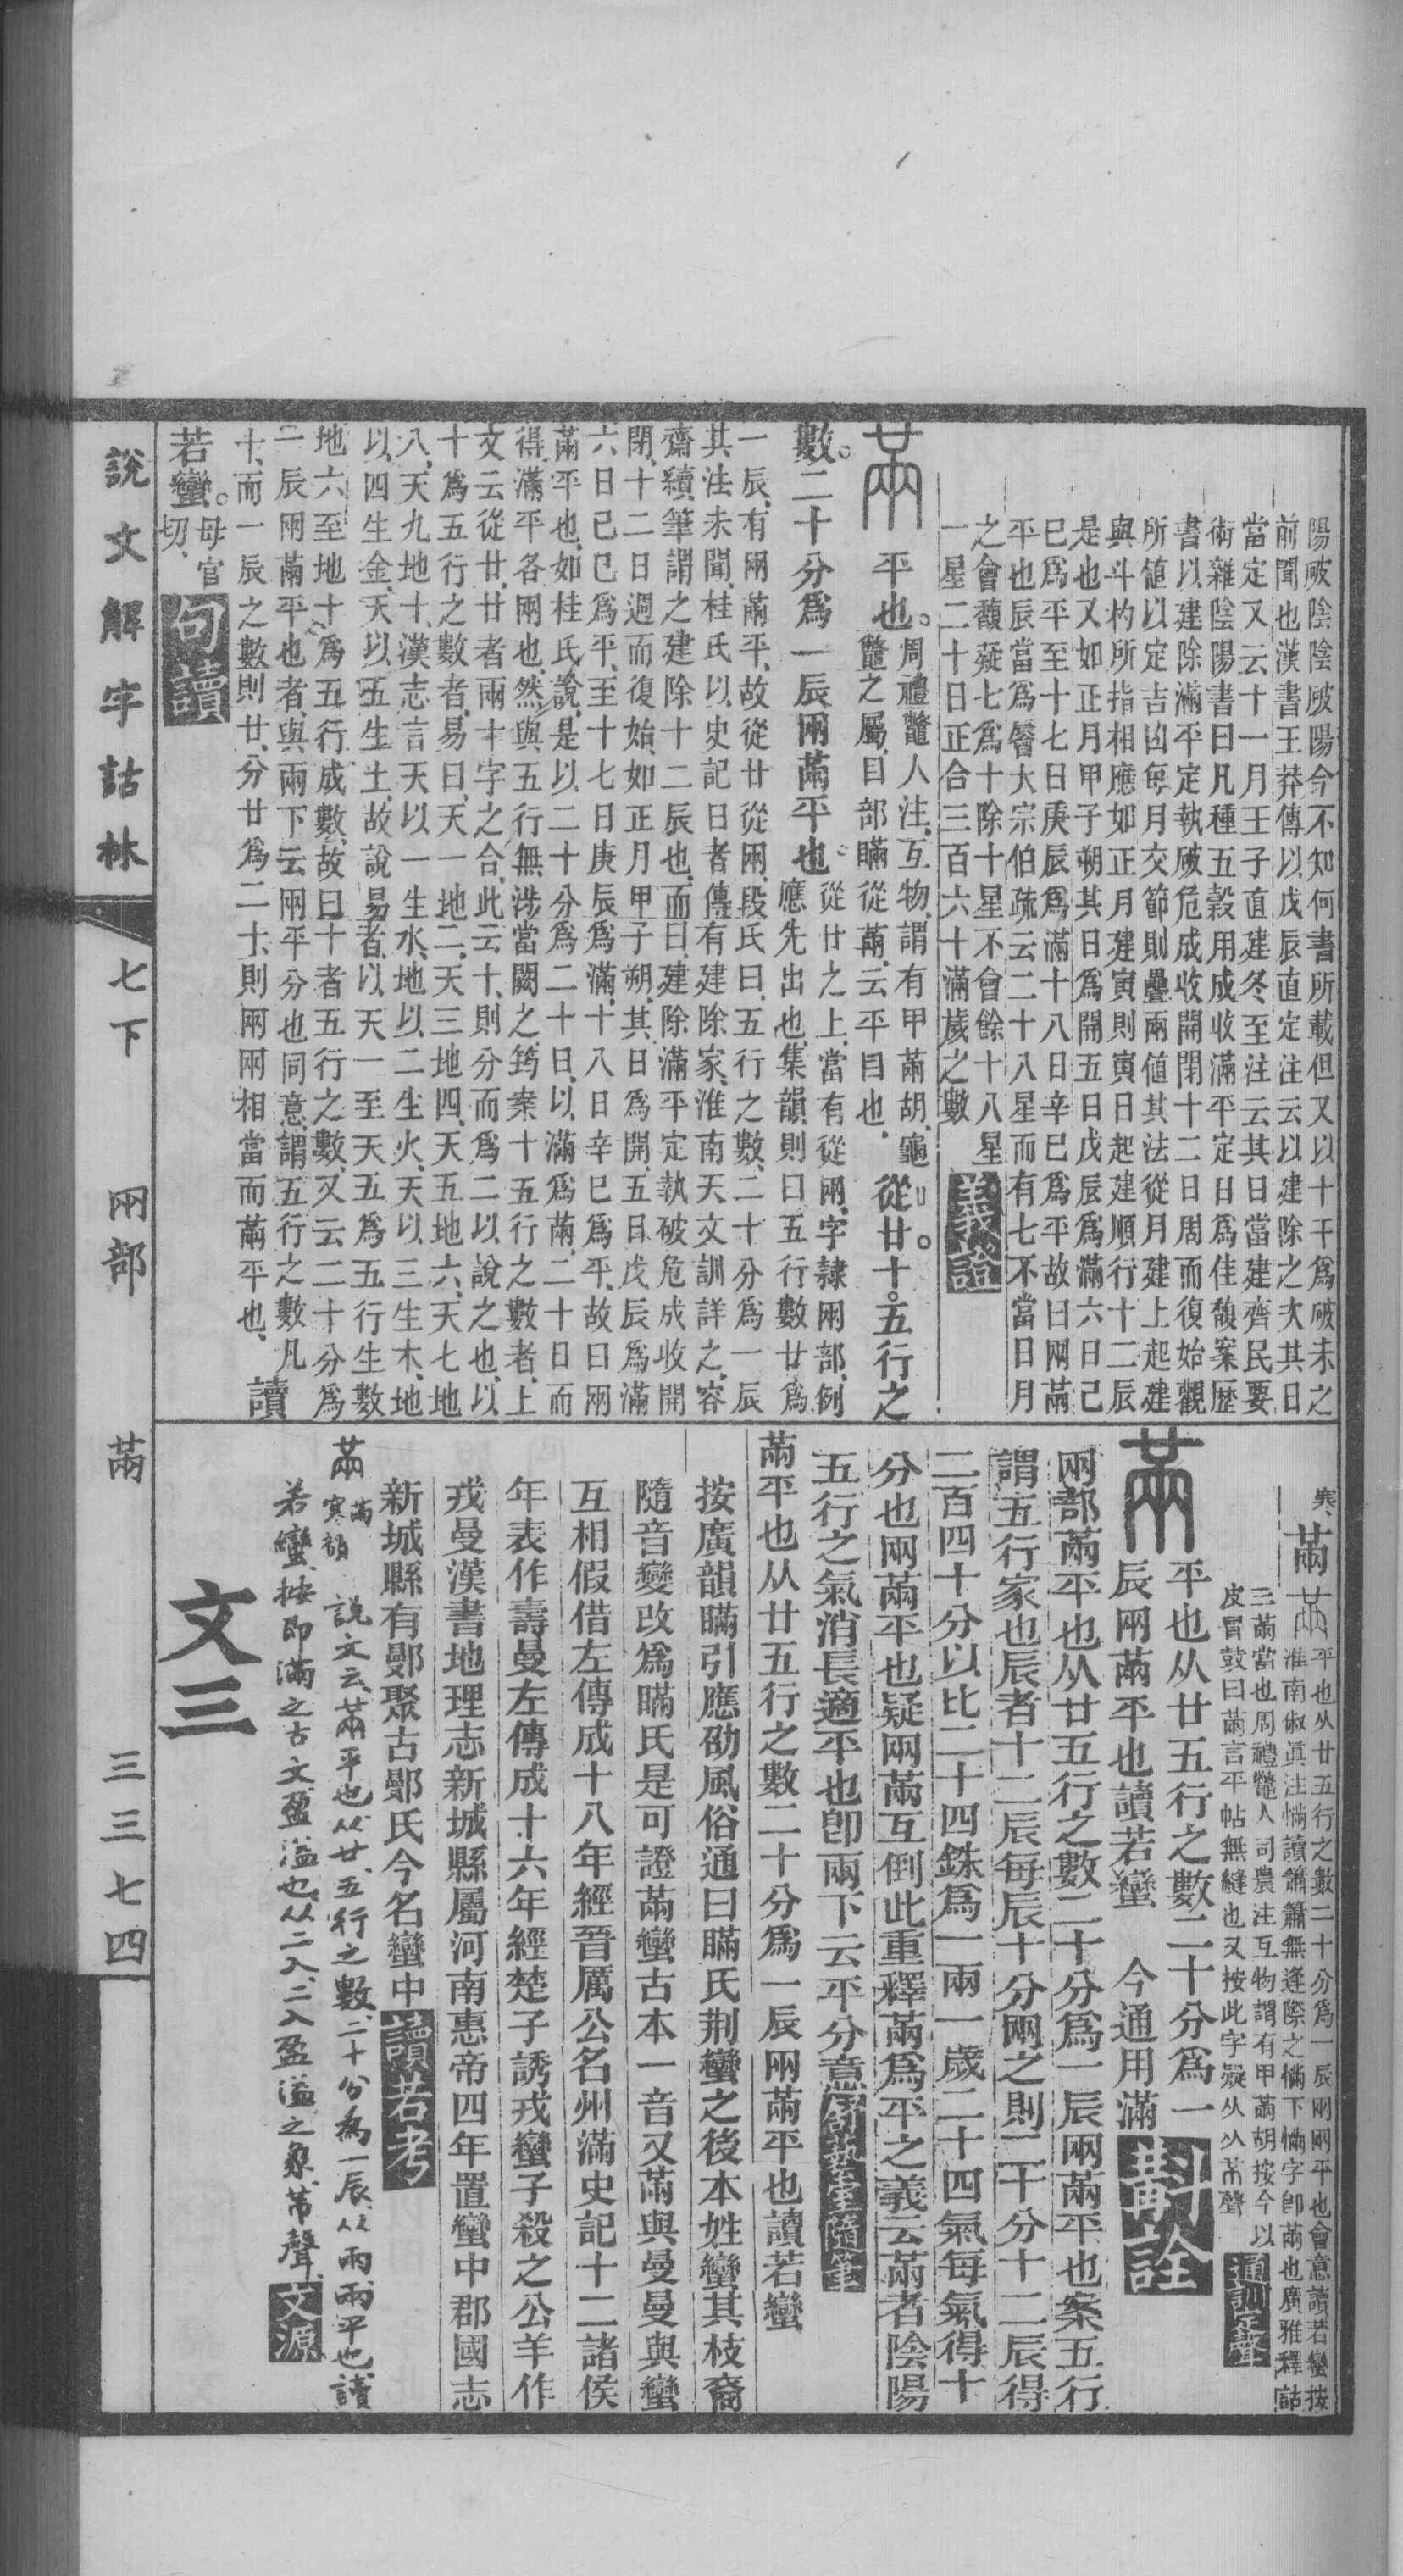 陽破陰陰破陽今不知何書所載但又以十干爲破未之
前聞也漢書王莽傳以戊辰直定注云以建除之次其日
當定又云十一月壬子直建冬至注云其日當建齊民要
術雜陰陽書曰凡種五穀用成收滿平定日爲佳馥案歷
書以建除滿平定執破危成收開閉十二日周而復始觀
所値以定吉凶每月交節則疊兩値其法從月建上起建
與斗杓所指相應如正月建寅則寅日起建順行十二辰
是也又如正月甲子朔其日爲開五日戊辰爲滿六日己
巳爲平至十七日庚辰爲滿十八日辛巳爲平故曰兩㒼
平也辰當爲晷大宗伯疏云二十八星而有七不當日月
之會馥疑七爲十除十星不會餘十八星
一星二十日正合三百六十滿歲之數 義證
㒼 平也。周禮鼈人注、互物、謂有甲㒼胡、龜鼈之屬、目部瞞從㒼、云平目也、從廿。十。五行之
數。二十分爲一辰兩㒼平也。從廿之上、當有從㒳、字隸㒳部、例應先出也、集韻、則曰、五行數廿爲
一辰、有兩㒼平、故從廿從㒳、段氏曰、五行之數、二十分爲一辰
其法未聞、桂氏以史記日者傳、有建除家、淮南天文訓詳之、容
齋續筆謂之建除十二辰也、而曰、建除滿平定執破危成收開
閉、十二日週而復始、如正月甲子朔、其日爲開、五日戊辰爲滿
六日己巳爲平、至十七日庚辰爲滿、十八日辛巳爲平、故曰兩
㒼平也、如桂氏說、是以二十分爲二十日、以滿爲㒼、二十日而
得滿平各兩也、然與五行無涉、當闕之、筠案十五行之數者、上
文云從廿、廿者兩十字之合、此云十、則分而爲二以說之也、以
十爲五行之數者、易曰、天一地二、天三地四、天五地六、天七地
八、天九地十、漢志言天以一生水、地以二生火、天以三生木、地
以四生金、天以五生土、故說易者、以天一至天五爲五行生數
地六至地十爲五行成數、故曰十者五行之數、又云二十分爲
一辰兩㒼平也者、與兩下云兩平分也同意、謂五行之數凡
十、而一辰之數則廿、分廿爲二十、則兩兩相當而㒼平也、讀
若蠻。母官切、 句讀
寒、㒼 㒼 平也从廿五行之數二十分爲一辰㒳㒳平也會意讀若蠻按
淮南俶眞注慲讀簫簫無逢際之慲下慲字卽㒼也廣雅釋詁
三㒼當也周禮鼈人司農注互物謂有甲㒼胡按今以
皮冒鼓曰㒼言平帖無縫也又按此字疑从㒳聲 通訓定聲
㒼 平也从廿五行之數二十分爲一
辰兩㒼平也讀若蠻 今通用滿 斠詮
㒳部㒼平也从廿五行之數二十分爲一辰兩㒼平也案五行
謂五行家也辰者十二辰每辰十分兩之則二十分十二辰得
二百四十分以比二十四銖爲一兩一歲二十四氣每氣得十
分也兩㒼平也疑兩㒼互倒此重釋㒼爲平之義云㒼者陰陽
五行之氣消長適平也卽兩下云平分意
㒼平也从廿五行之數二十分爲一辰兩㒼平也讀若蠻
按廣韻瞞引應劭風俗通曰瞞氏荆蠻之後本姓蠻其枝裔
隨音變改爲瞞氏是可證㒼蠻古本一音又㒼與曼曼與蠻
互相假借左傳成十八年經晉厲公名州滿史記十二諸侯
年表作壽曼左傳成十六年經楚子誘戎蠻子殺之公羊作
戎曼漢書地理志新城縣屬河南惠帝四年置蠻中郡國志
新城縣有鄤聚古鄤氏今名蠻中 讀若考
㒼 㒼寒韻 說文云、㒼平也、从廿、五行之數、二十分爲一辰、从㒳㒳平也、讀
若蠻、按卽滿之古文、盈溢也、从二入、二入盈溢之象、㒼聲、 文源
文三
說文解字詁林 七下 㒳部 㒼 三三七四